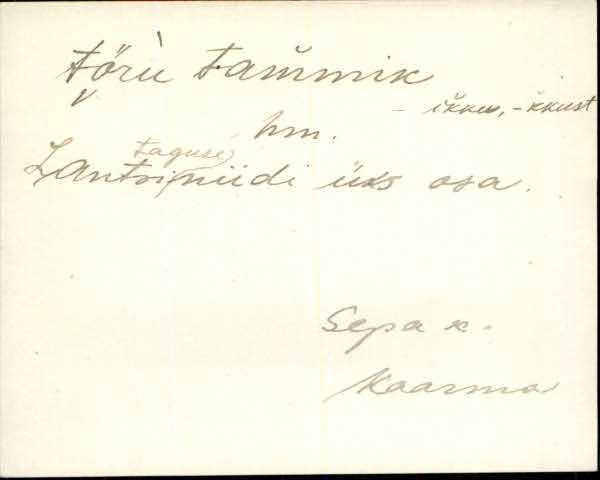 tõrù tam̆mik
- ik̆ku, -k̆kust
hm.
taguse
Lantriniidi üks osa.
Sepa k.
Kaarma